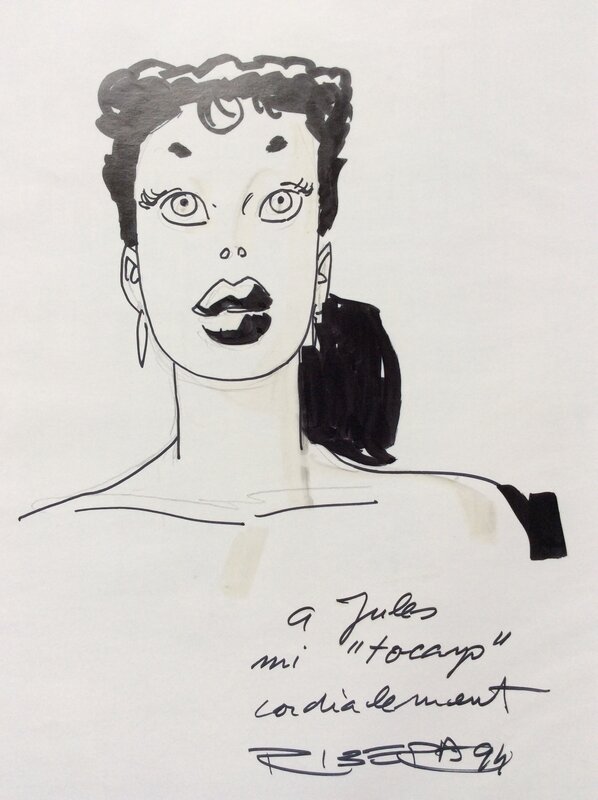 a Jules
mi "tocayo"
cordialement
RIBERA 94